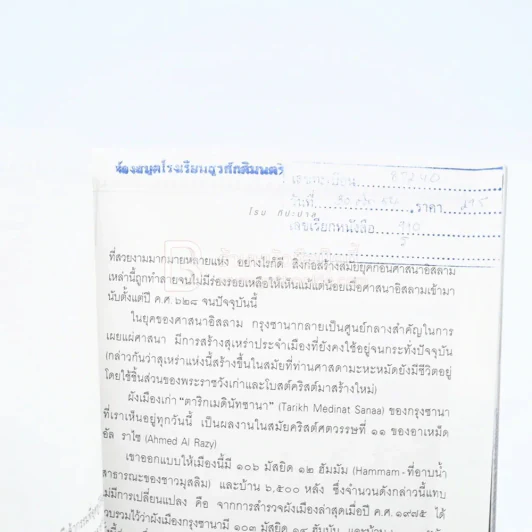 ห้องสมุดโรงเรียนสุรศักดิ์มนตรี
เลขทะเบียน
วันที่ ราคา
เลขเรียกหนังสือ
ที่สวยงามมากมายหลายแห่ง อย่างไรก็ดี สิ่งก่อสร้างสมัยยุคก่อนศาสนาอิสลาม
เหล่านี้ถูกทำลายจนไม่มีร่องรอยเหลือให้เห็นแม้แต่น้อยเมื่อศาสนาอิสลามเข้ามา
นับตั้งแต่ปี ค.ศ. ๖๒๘ จนปัจจุบันนี้
ในยุคของศาสนาอิสลาม กรุงซานากลายเป็นศูนย์กลางสำคัญในการ
เผยแผ่ศาสนา มีการสร้างสุเหร่าประจำเมืองที่ยังคงใช้อยู่จนกระทั่งปัจจุบัน
(กล่าวกันว่าสุเหร่าแห่งนี้สร้างขึ้นในสมัยที่ท่านศาสดามะหะหมัดยังมีชีวิตอยู่
โดยใช้ชิ้นส่วนของพระราชวังเก่าและโบสถ์คริสต์มาสร้างใหม่)
ผังเมืองเก่า "ตาริกเมดินัทซานา" (Tarikh Medinat Sanaa) ของกรุงซานา
ที่เราเห็นอยู่ทุกวันนี้ เป็นผลงานในสมัยคริสต์ศตวรรษที่ ๑๑ ของอาเหม็ด
อัล ราไซ (Ahmed Al Razy)
เขาออกแบบให้เมืองนี้มี ๑๐๖ มัสยิด ๑๒ ฮัมมัม (Hammam - ที่อาบน้ำ
สาธารณะของชาวมุสลิม) และบ้าน ๖,๕๐๐ หลัง ซึ่งจำนวนดังกล่าวนี้แทบ
ไม่มีการเปลี่ยนแปลง คือ จากการสำรวจผังเมืองล่าสุดเมื่อปี ค.ศ. ๑๙๗๕ ได้
รวบรวมไว้ว่าผังเมืองกรุงซานามี ๑๐๓ มัสยิด ๑๔ ฮัมมัม